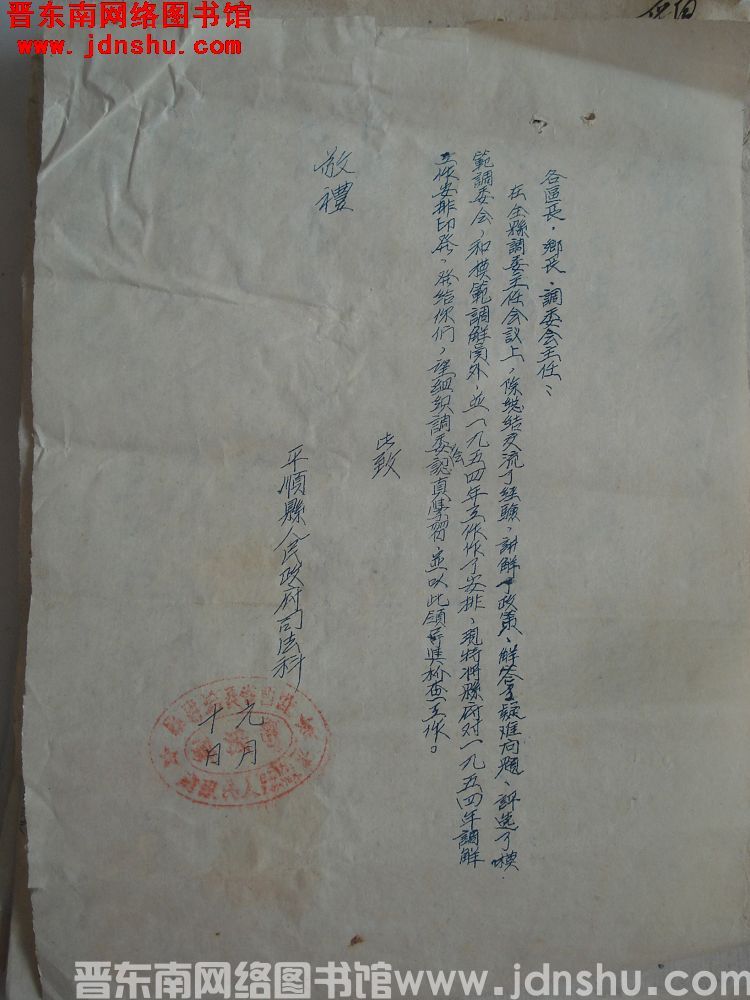 晋东南网络图书馆
www.jdnshu.com
各區長，鄉長、調委会主任：
在全縣調委主任会議上，除總結交流了經驗，講解了政策，解答了疑难问題，評选了模
範調委会，和模範調解員外，並一九五四年工作作了安排，現特將縣府对一九五四年調解
工作安排印發，發給你们，望組织調委会認真學習，並以此領导與检查工作。
此致
敬禮
平順縣人民政府司法科
元月
十日
晋东南网络图书馆www.jdnshu.com